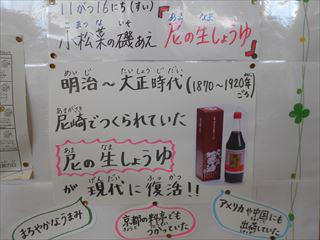 11がつ16にち(すい)
こまつな いそ
小松菜の磯あえ
あま なま
尼の生しょうゆ
めいじ たいしょうじだい
明治～大正時代(1870～1920年ごろ)
あまがさき
尼崎でつくられていた
あま なま
尼の生しょうゆ
げんだい ふっかつ
が現代に復活!!
まろやかなうまみ
京都の料亭でも
つかっていた
アメリカや中国にも
出荷していた